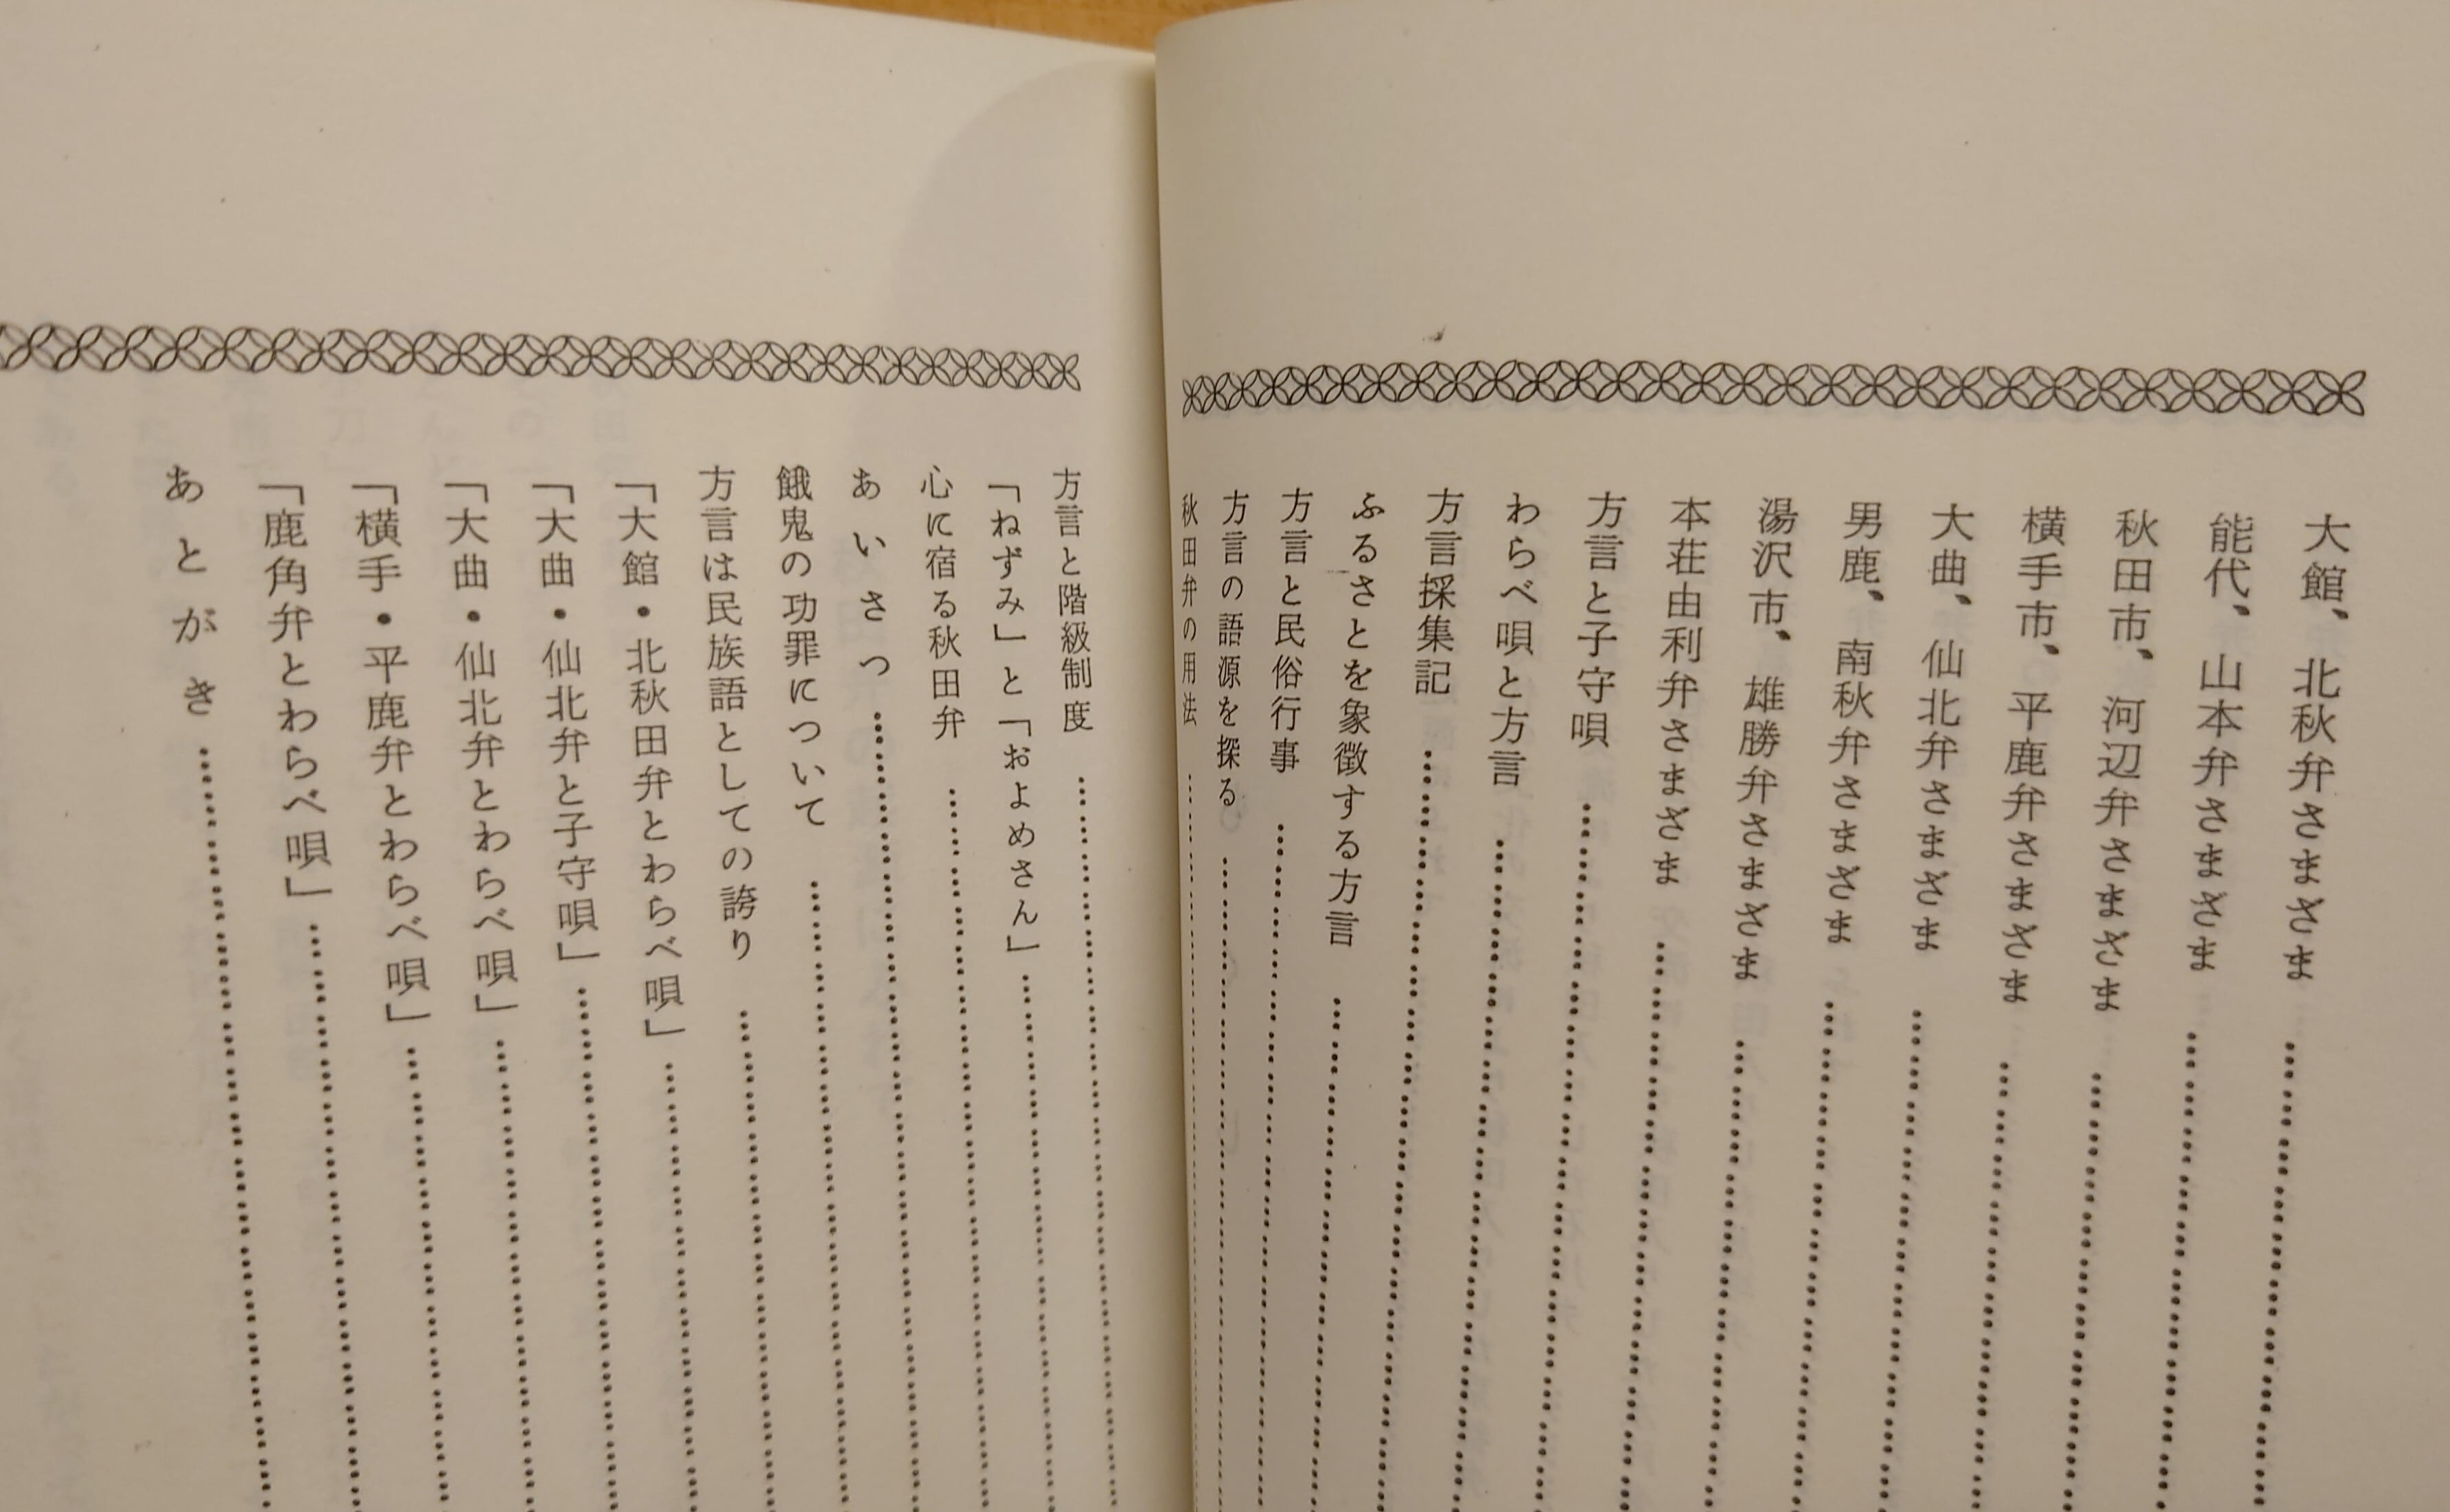 大館、北秋弁さまざま……
能代、山本弁さまざま……
秋田市、河辺弁さまざま……
横手市、平鹿弁さまざま……
大曲、仙北弁さまざま……
男鹿、南秋弁さまざま……
湯沢市、雄勝弁さまざま……
本荘由利弁さまざま……
方言と子守唄……
わらべ唄と方言……
方言採集記……
ふるさとを象徴する方言……
方言と民俗行事……
方言の語源を探る……
秋田弁の用法……
方言と階級制度……
「ねずみ」と「およめさん」……
心に宿る秋田弁……
あいさつ……
餓鬼の功罪について……
方言は民族語としての誇り……
「大館・北秋田弁とわらべ唄」……
「大曲・仙北弁と子守唄」……
「大曲・仙北弁とわらべ唄」……
「横手・平鹿弁とわらべ唄」……
「鹿角弁とわらべ唄」……
あとがき……